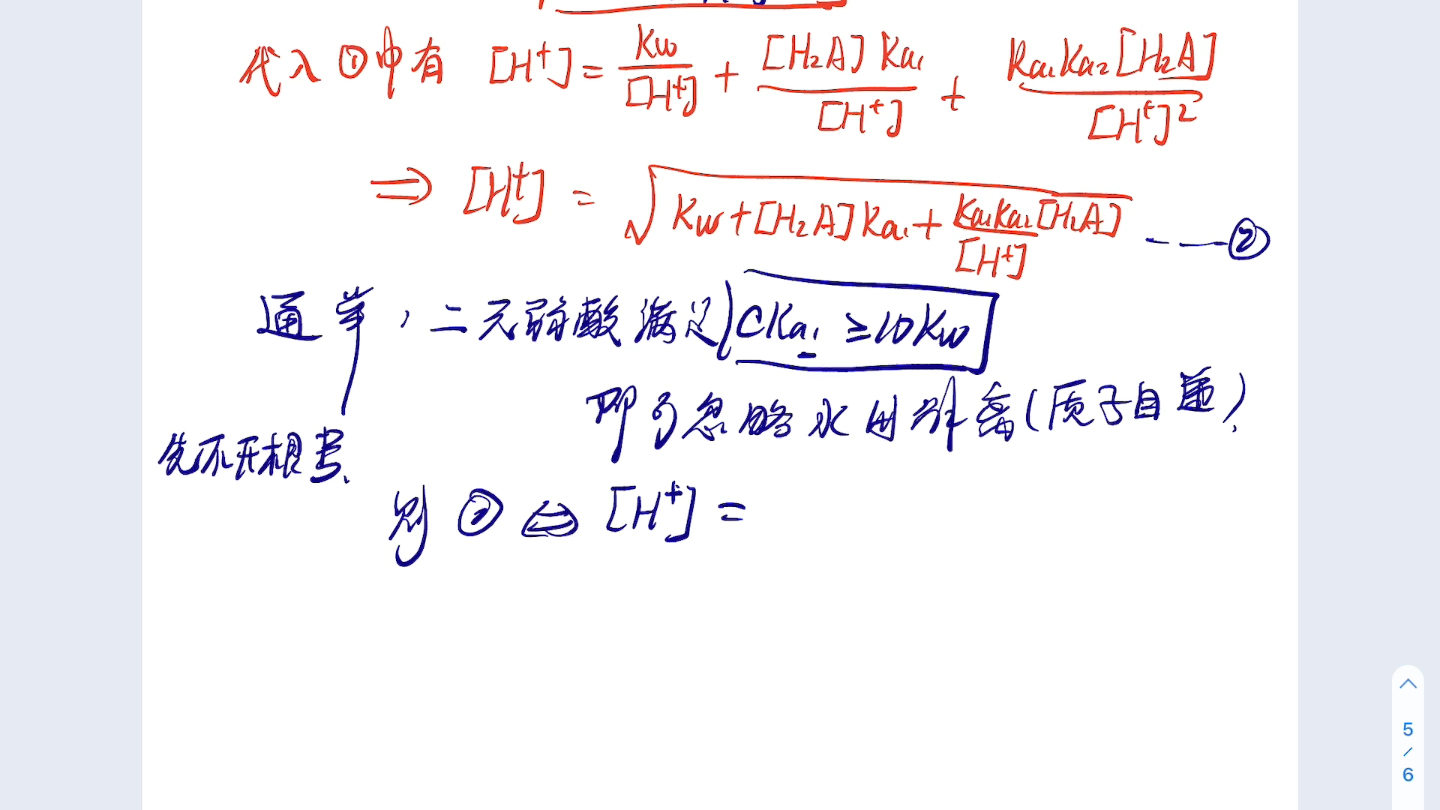 代入①中有 [H⁺] = Kw/[H⁺] + [H₂A]Ka₁/[H⁺] + Ka₁Ka₂[H₂A]/[H⁺]²
⇒ [H⁺] = √(Kw+[H₂A]Ka₁+Ka₁Ka₂[H₂A]/[H⁺]) -----②
通常，二元弱酸满足 CKa₁ ≥10Kw
即可忽略水的解离(质子自递)
先不开根号、
则 ② ⇔ [H⁺] =
5
/
6